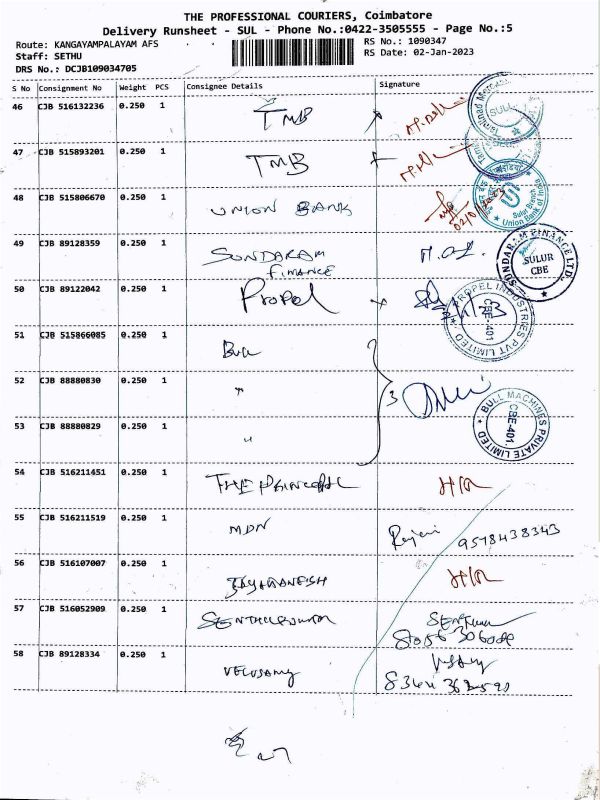 THE PROFESSIONAL COURIERS, Coimbatore
Delivery Runsheet - SUL - Phone No.:0422-3505555 - Page No.:5
Route: KANGAYAMPALAYAM AFS
RS No.: 1090347
Staff: SETHU
RS Date: 02-Jan-2023
DRS No.: DCJB109034705
S No Consignment No Weight PCS Consignee Details Signature
46 CJB 516132236 0.250 1 TMB
47 CJB 515893201 0.250 1 TMB
48 CJB 515806670 0.250 1 UNION BANK 02/01/2023
Sulur Branch
Union Bank of India
49 CJB 89128359 0.250 1 SUNDARAM
FINANCE
SUNDARAM FINANCE LTD.
SULUR
CBE
50 CJB 89122042 0.250 1 Propel
PROPEL INDUSTRIES PVT LIMITED
CBE-401
51 CJB 515866085 0.250 1 Bull
52 CJB 88880830 0.250 1 " 3
53 CJB 88880829 0.250 1 "
BULL MACHINES PRIVATE LIMITED
CBE-401.
54 CJB 516211451 0.250 1 THE PRINCIPAL
55 CJB 516211519 0.250 1 MDN Rajeni 9578438343
56 CJB 516107007 0.250 1 JAYAGANESH
57 CJB 516052909 0.250 1 SENTHILKUMAR
58 CJB 89128334 0.250 1 VELUSAMY